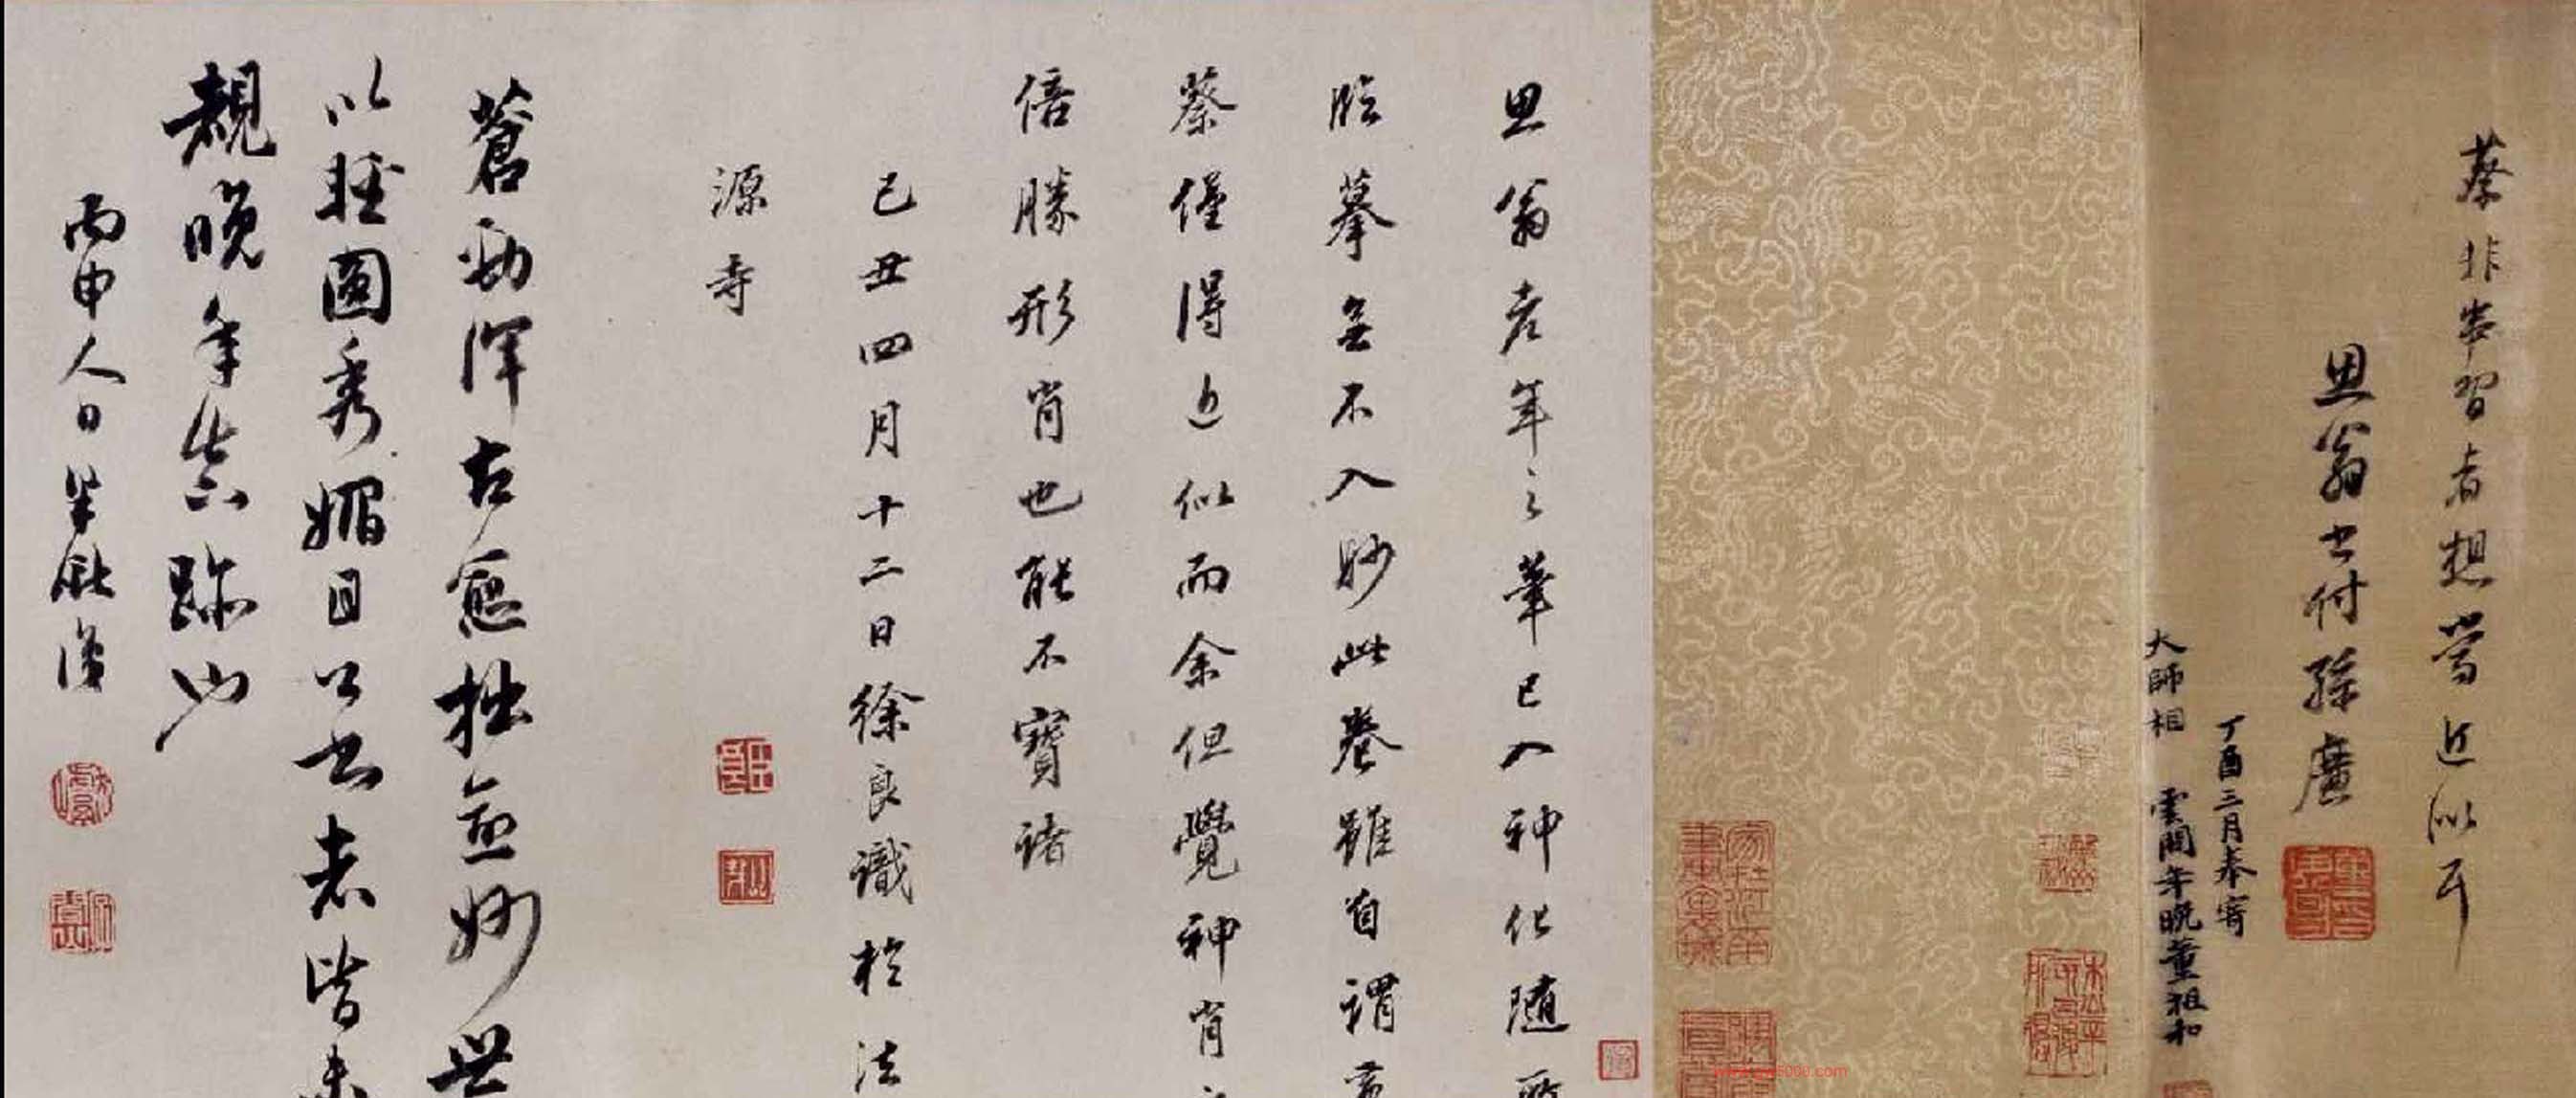 蔡非常習者想當近似耳
思翁書付孫廣
丁酉三月奉寄
大師相 雲間年晚董祖和
思翁老年之筆已入神化隨所
臨摹無不入妙此卷雖自謂
蔡僅得近似而余但覺神肖
倍勝形肖也能不寶諸
己丑四月十二日徐良識於法
源寺
蒼勁渾古愈拙愈妙世
以輕圓秀媚目公書者皆未
覩晚年真跡也
丙申人日
www.